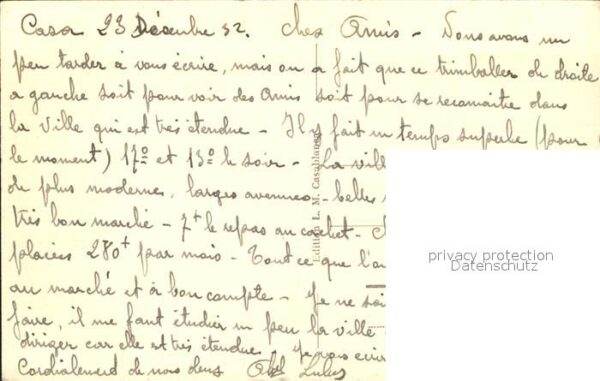 Casa 23 Décembre 32. Chez Amis - Nous avons un
peu tarder à vous écrire, mais on a fait que ce trimballer de droite
a gauche soit pour voir des Amis soit pour se reconnaitre dans
la Ville qui est très étendue - Il y fait un temps superbe (pour
le moment) 17° et 13° le soir - La vill
de plus modernes, larges avenues - belles
très bon marché - 7 le repas au cachet -
280 par mois - Tout ce que l'
au marché et à bon compte - Je ne sai
faire, il me faut étudier un peu la ville
diriger car elle est très étendue - Je vais ecrir
Cordialement de nous deux
Edition L. M. Casablanca
privacy protection
Datenschutz